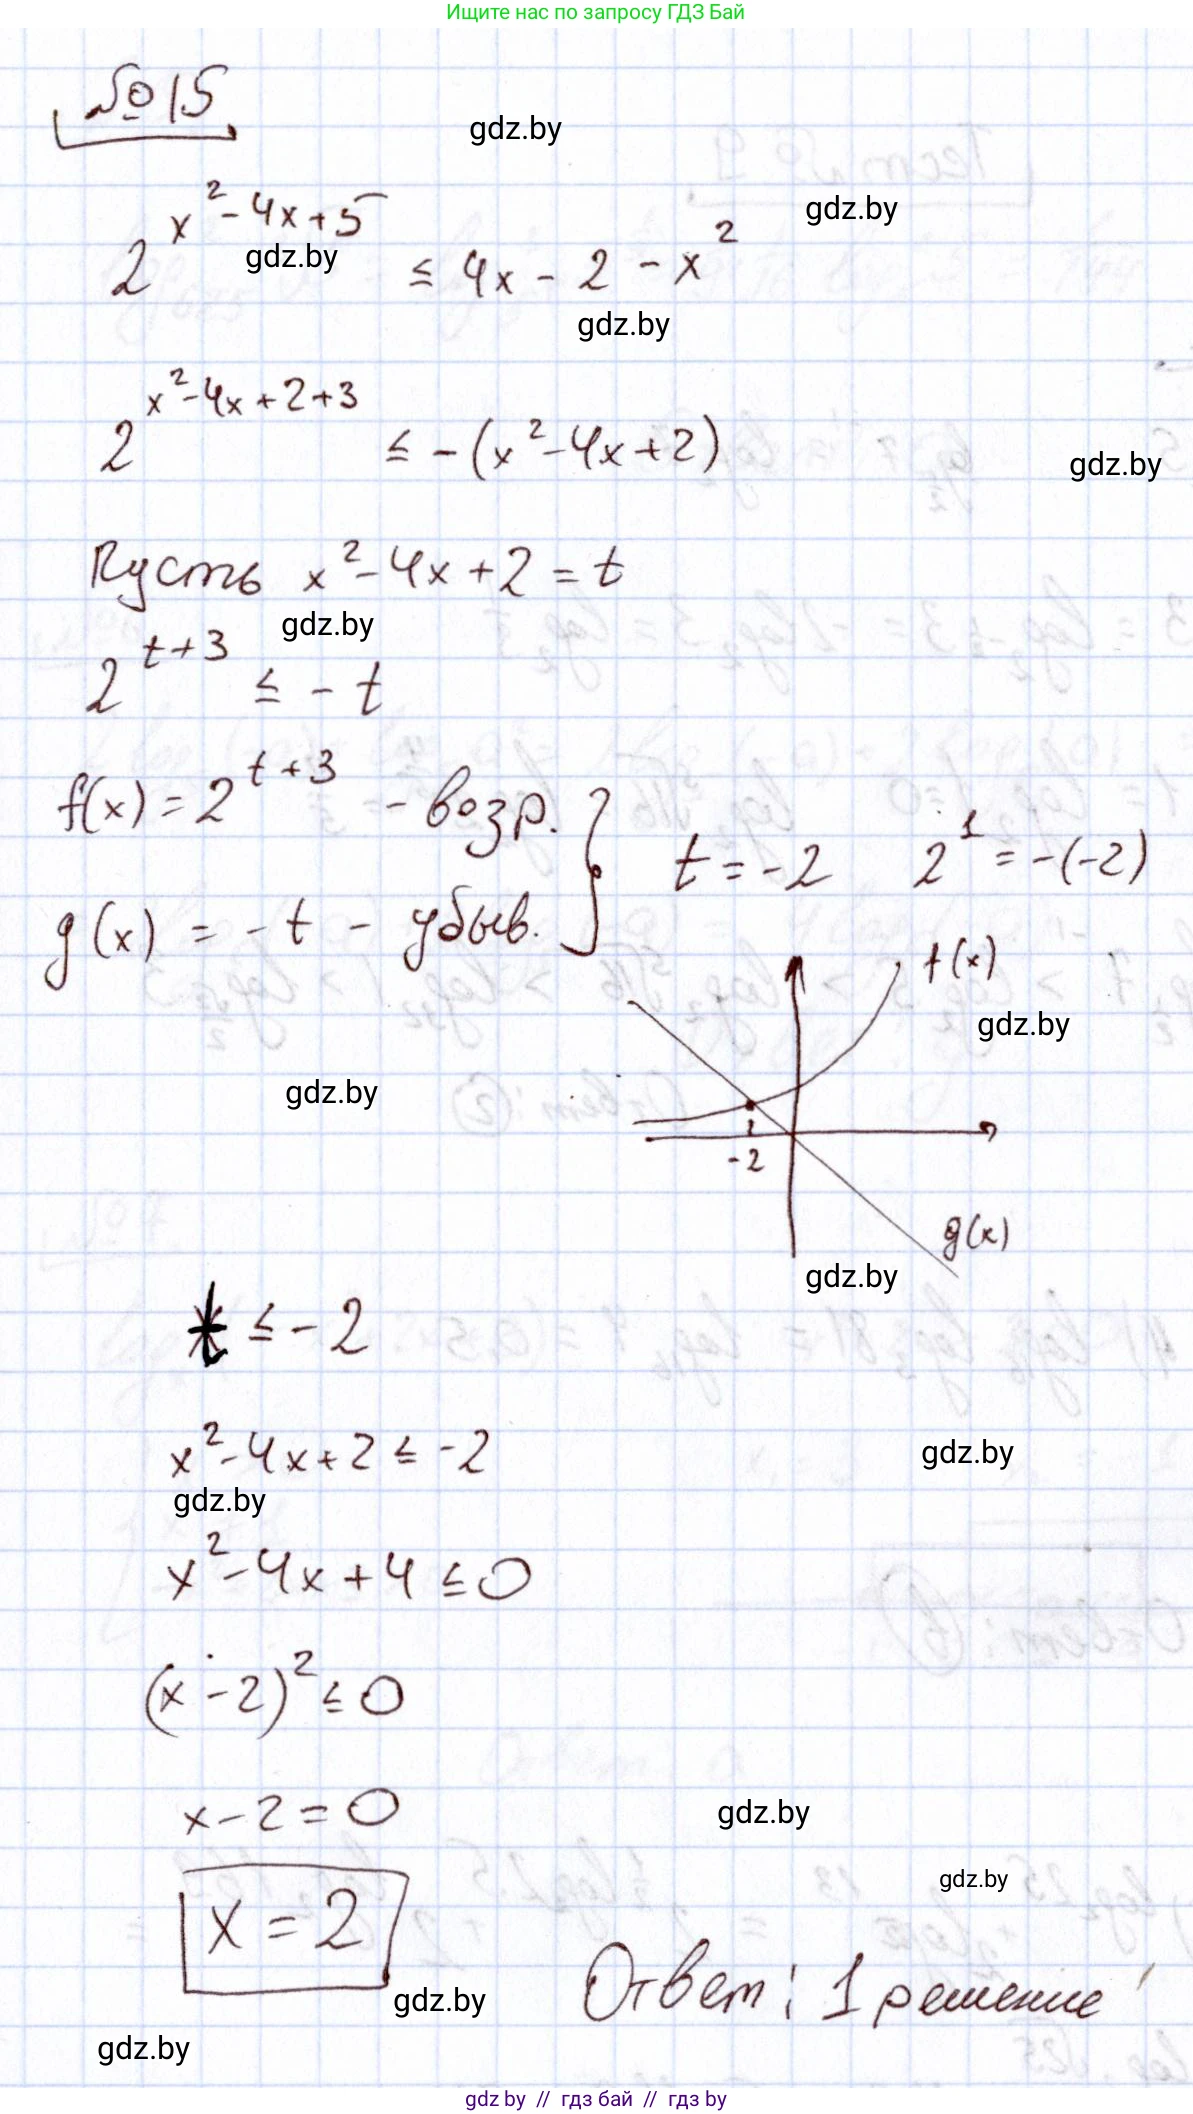 Ищите нас по запросу ГДЗ Бай
№15
gdz.by
2^(x²-4x+5) ≤ 4x - 2 - x²
gdz.by
gdz.by
gdz.by
2^(x²-4x+2+3) ≤ -(x²-4x+2)
gdz.by
Пусть x²-4x+2 = t
gdz.by
2^(t+3) ≤ -t
f(x) = 2^(t+3) - возр.
t = -2 2^1 = -(-2)
g(x) = -t - убыв.
f(x)
gdz.by
gdz.by
-2
g(x)
gdz.by
t ≤ -2
x²-4x+2 ≤ -2
gdz.by
gdz.by
x²-4x+4 ≤ 0
(x-2)² ≤ 0
x-2 = 0
gdz.by
gdz.by
x = 2
Ответ: 1 решение
gdz.by
gdz.by
gdz by // гдз бай // гдз by